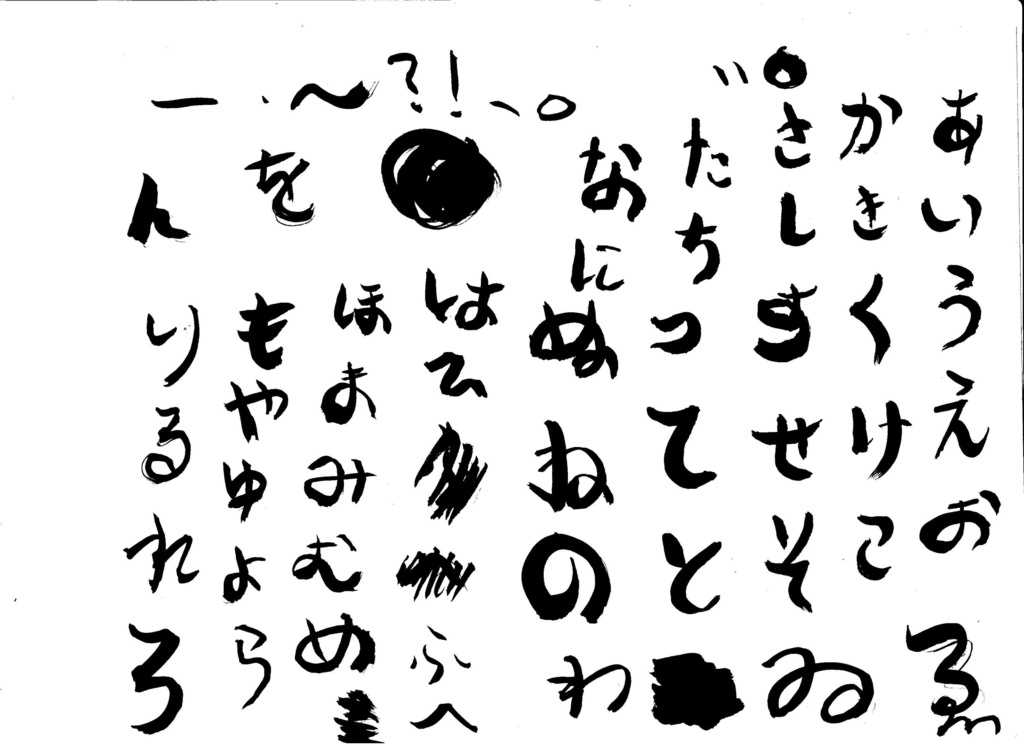 あいうえおゑ
かきくけこ
さしすせそゐ
たちつてと
なにぬねのわ
はひふへ
ほまみむめ
もやゆよら
をん
りるれろ
゛゜
ー・〜?!、。